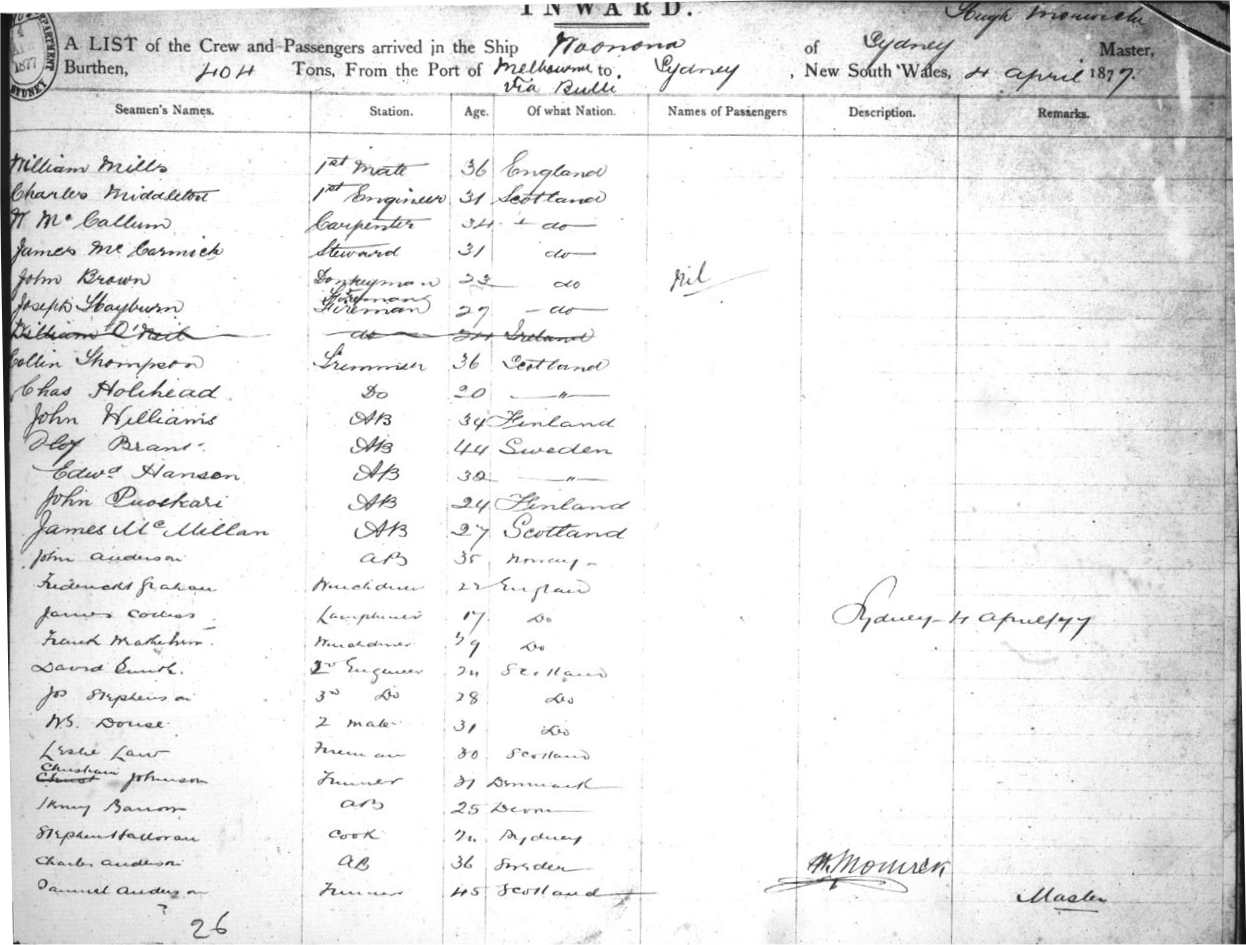 INWARD.
Hugh
A LIST of the Crew and Passengers arrived in the Ship Woonona of Sydney Master,
Burthen, 404 Tons, From the Port of Melbourne to, Sydney, New South Wales, 4 April 1877.
Via Bulli
4
1877
SYDNEY
Seamen's Names. Station. Age. Of what Nation. Names of Passengers Description. Remarks.
William Mills 1st Mate 36 England
Charles Middleton 1st Engineer 31 Scotland
McCallum Carpenter 34 do
James McCormick Steward 31 do
John Brown Donkeyman 23 do Nil
Fireman
Joseph Hayburn Fireman 27 do
William O'Neil do 24 Ireland
Collin Thompson Trimmer 36 Scotland
Chas Holihead Do 20 "
John Williams AB 34 Finland
Brant AB 44 Sweden
Edwd Hanson AB 32 "
John Puoskari AB 24 Finland
James McMillan AB 27 Scotland
John Anderson AB 35 Norway
Frederick Graham Winchdriver 22 England
James Lamptrimer 17 Do Sydney 4 April/77
Frank Winchdriver 29 Do
David Smith 2nd Engineer Scotland
Jos Stephenson 3rd Do 28 Do
WS. Douse 2 mate 31 Do
Leslie Law Fireman 30 Scotland
Christian
Christ Johnson Trimmer 31 Denmark
Henry Barrow AB 25 Devon
Stephen Halloran Cook Sydney
Charles Anderson AB 36 Sweden
Samuel Anderson Trimmer 45 Scotland
Master
?
26